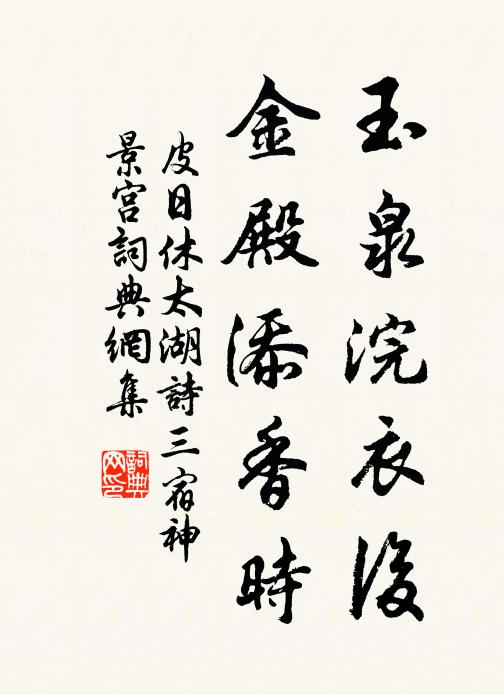 玉泉浣衣後
金殿添香時
皮日休太湖詩三宿神
景宮詞典網集
詞典
网印